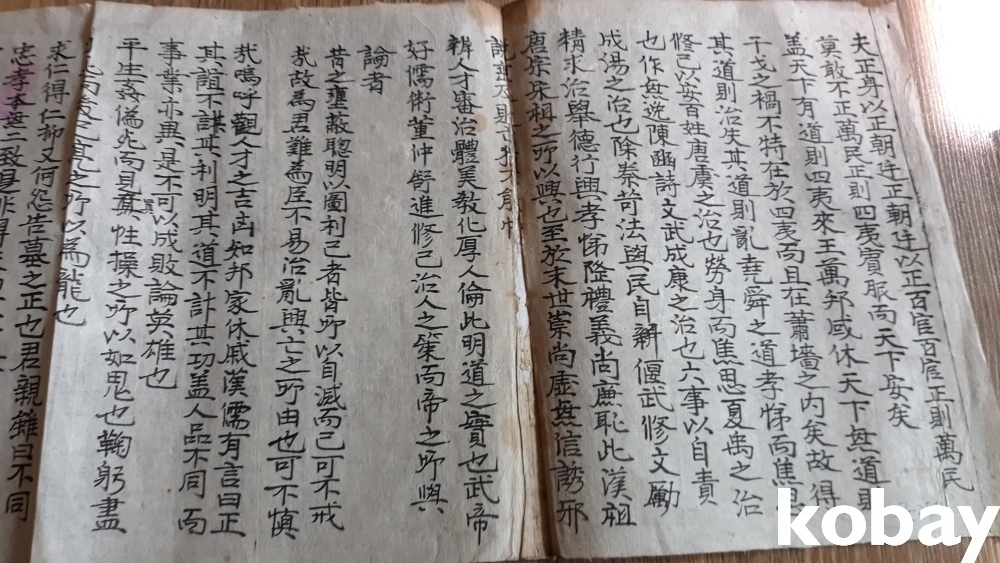 夫正身以正朝廷正朝廷以正百官百官正則萬民
莫敢不正萬民正則四夷賓服而天下安矣
盖天下有道則四夷來王萬邦咸休天下無道則
干戈之禍不特在於四夷而且在蕭墻之內矣故得
其道則治失其道則亂堯舜之道孝悌而焦思
修己以安百姓唐虞之治也勞身而焦思夏禹之治
也作無逸陳豳詩文武成康之治也六事以自責
成湯之治也除秦苛法與民自新偃武修文勵
精求治舉德行興孝悌隆禮義尚廉恥此漢祖
唐宗宋祖之所以興也至於末世崇尚虛無信誘邪
說
辨人才審治體美敎化厚人倫此明道之實也武帝
好儒術董仲舒進修己治人之策而帝之所與
論者
昔之壅蔽聰明以圖利己者皆所以自滅而已可不戒
哉故爲君難爲臣不易治亂興亡之所由也可不慎
哉嗚呼觀人才之吉凶知邦家休戚漢儒有言曰正
其誼不謀其利明其道不計其功盖人品不同而
事業亦異是不可以成敗論英雄也
平生姦僞死而見眞性操之所以如鬼也鞠躬盡
之所以爲龍也
求仁得仁抑又何怨告墓之正也君親雖曰不同
忠孝本無二致
kobay